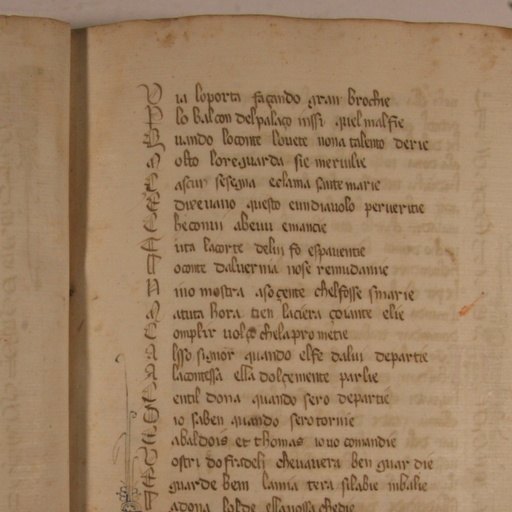 V ia loporta façando gran brochie
P lo balcon del palaço inssi quel malfie
Q uando loconte louete nona talento derie
M olto loreguarda sie meruilie
C ascun sesegna eclama sante marie
E direuano questo eun diauolo peruertie
C heconui abeuu emancie
T uta lacorte delui fo espauentie
E l conte daluernia nose remudamie
N ino mostra asoçente chelfosse smarie
M a tuta hora tien laciera çoiante elie
C omplir uolse chelaprometie
A lsso signor quando elfe dalui departie
A lacontessa ella dolçemente parlie
G entil dona quando sero departie
E io saben quando serotornie
E abaldois et thomas io uo comandie
V ostri dofradeli cheuauera ben guardie
E guarde bem lamia tera silabie inbalie
M adona lolde ellauossa chedie